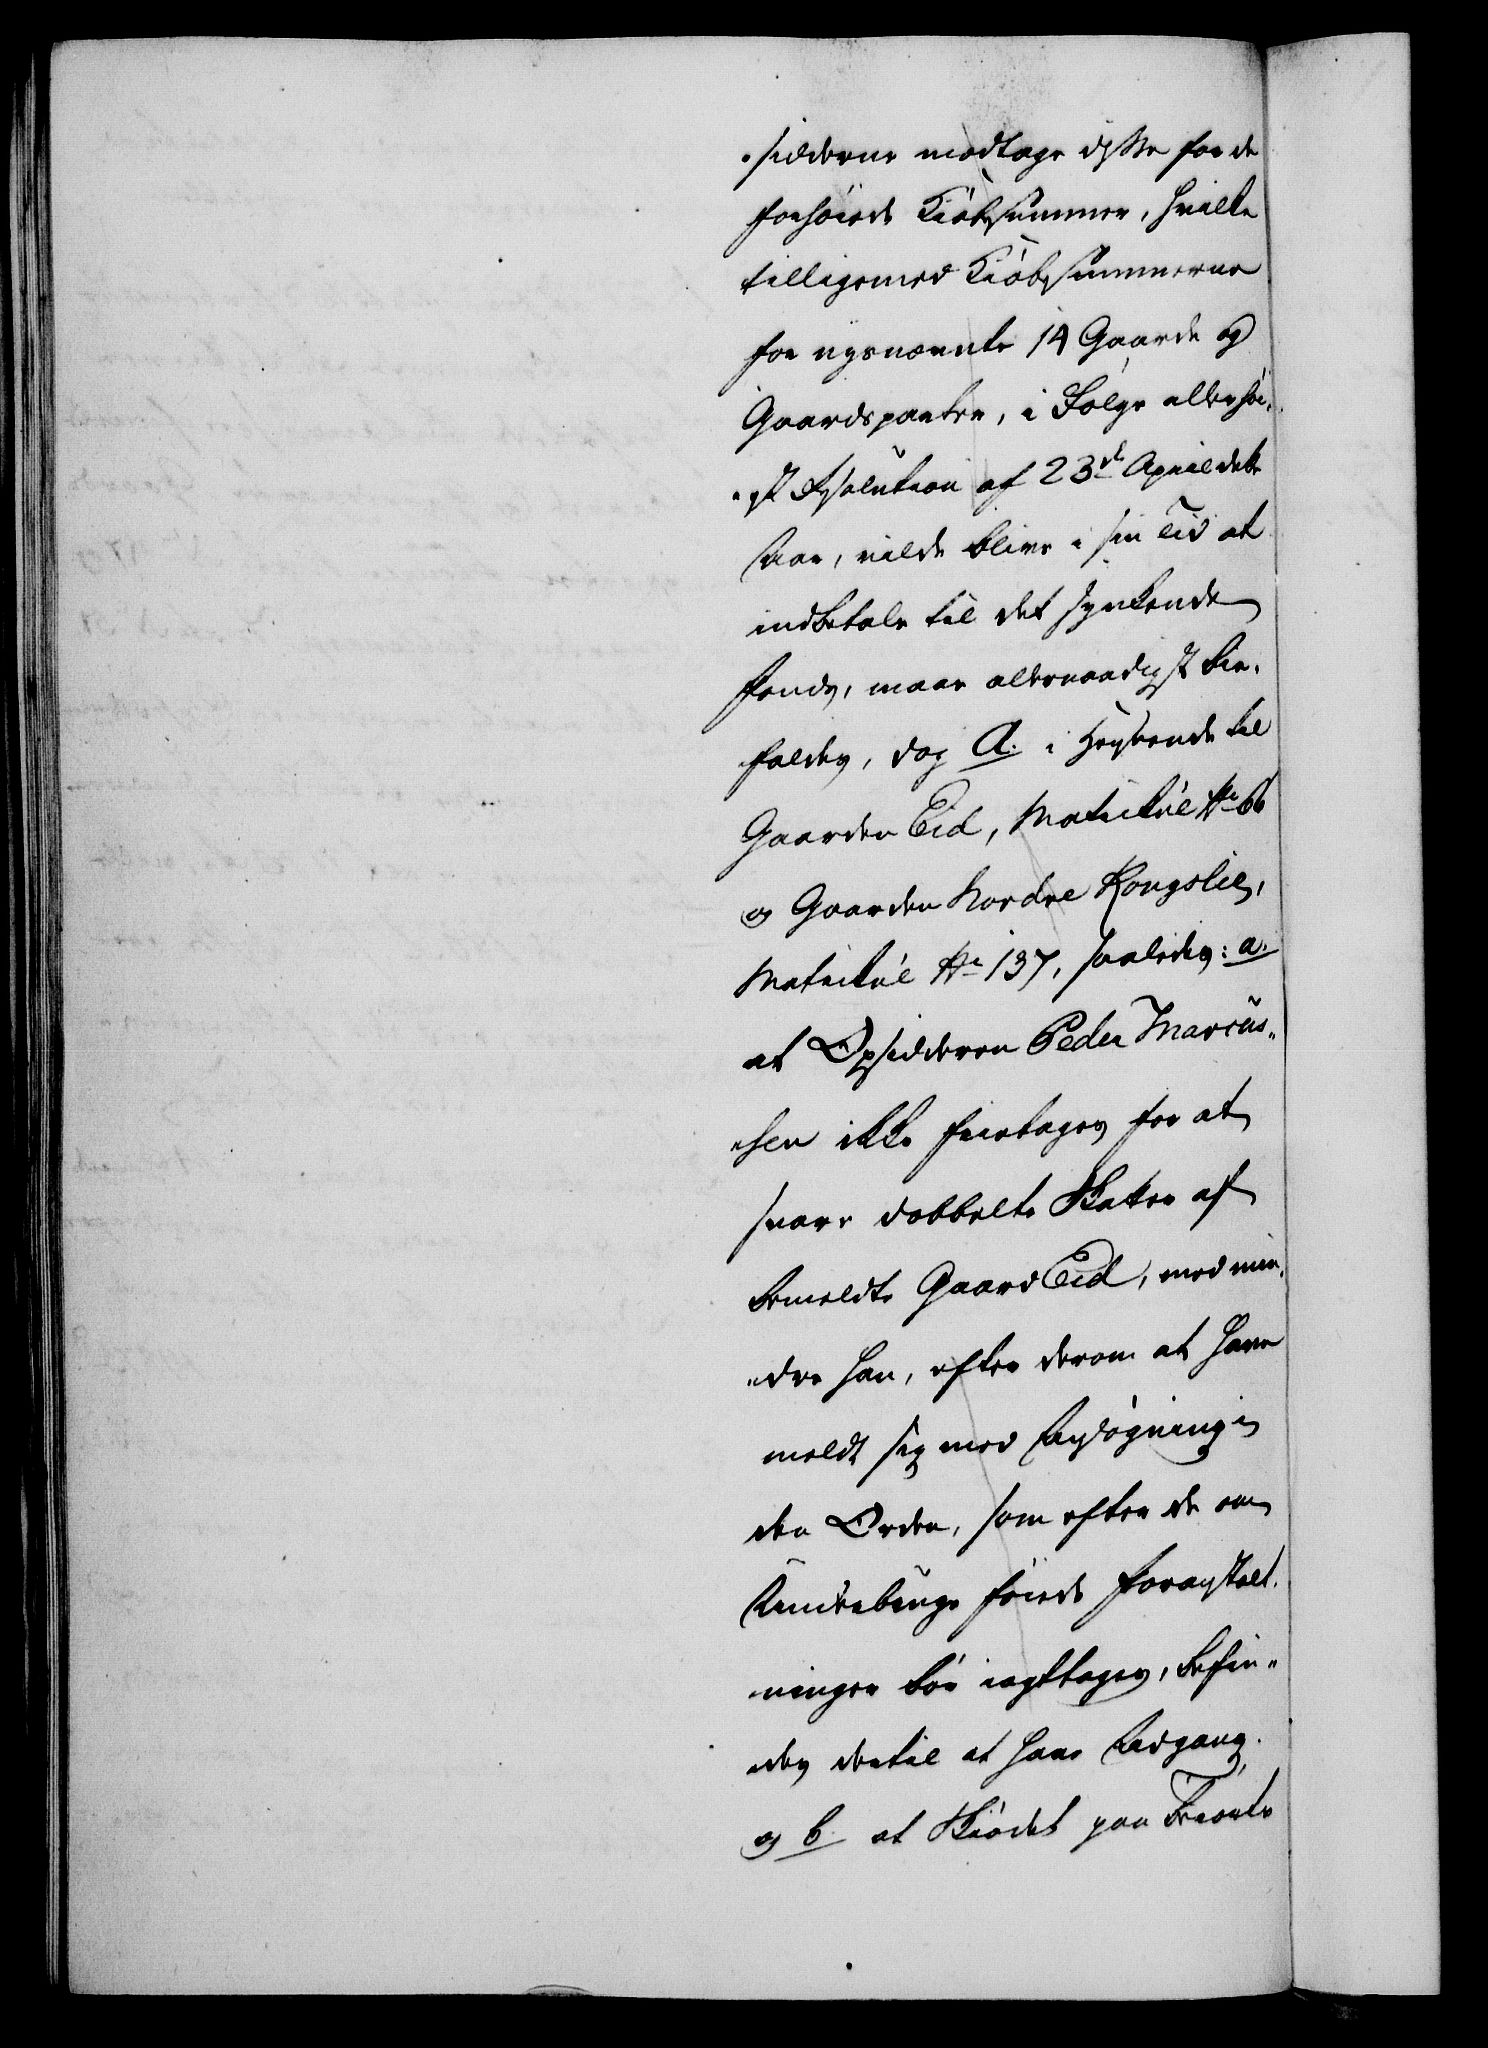 „sidderne modtage disse for de
forhøiede Kiøbesummer, hvilke
tilligemed Kiøbesummerne
for nysnævnte 14 Gaarde og
Gaardsparter, i Følge allerhøi„
„est Resolution af 23de April dette
Aar, vilde blive i sin Tid at
indbetale til det synkende
Fonds, maae allernaadigst bi„
„faldes, dog A. i Henseende til
Gaarden Eid, Matricul No 66
og Gaarden Nordre Kongslie,
Matricul No 137, saaledes: a.
at Opsidderen Peder Marcus„
„sen ikke fritages for at
svare dobbelte Skatter af
bemeldte Gaard Eid, med min„
„dre han, efter derom at have
meldt sig med Ansøgning i
den Orden, som efter de om
føiede Foranstalt„
„ninger bør iagttages, befin„
„des dertil at have Adgang,
og b. at Skiødet paa